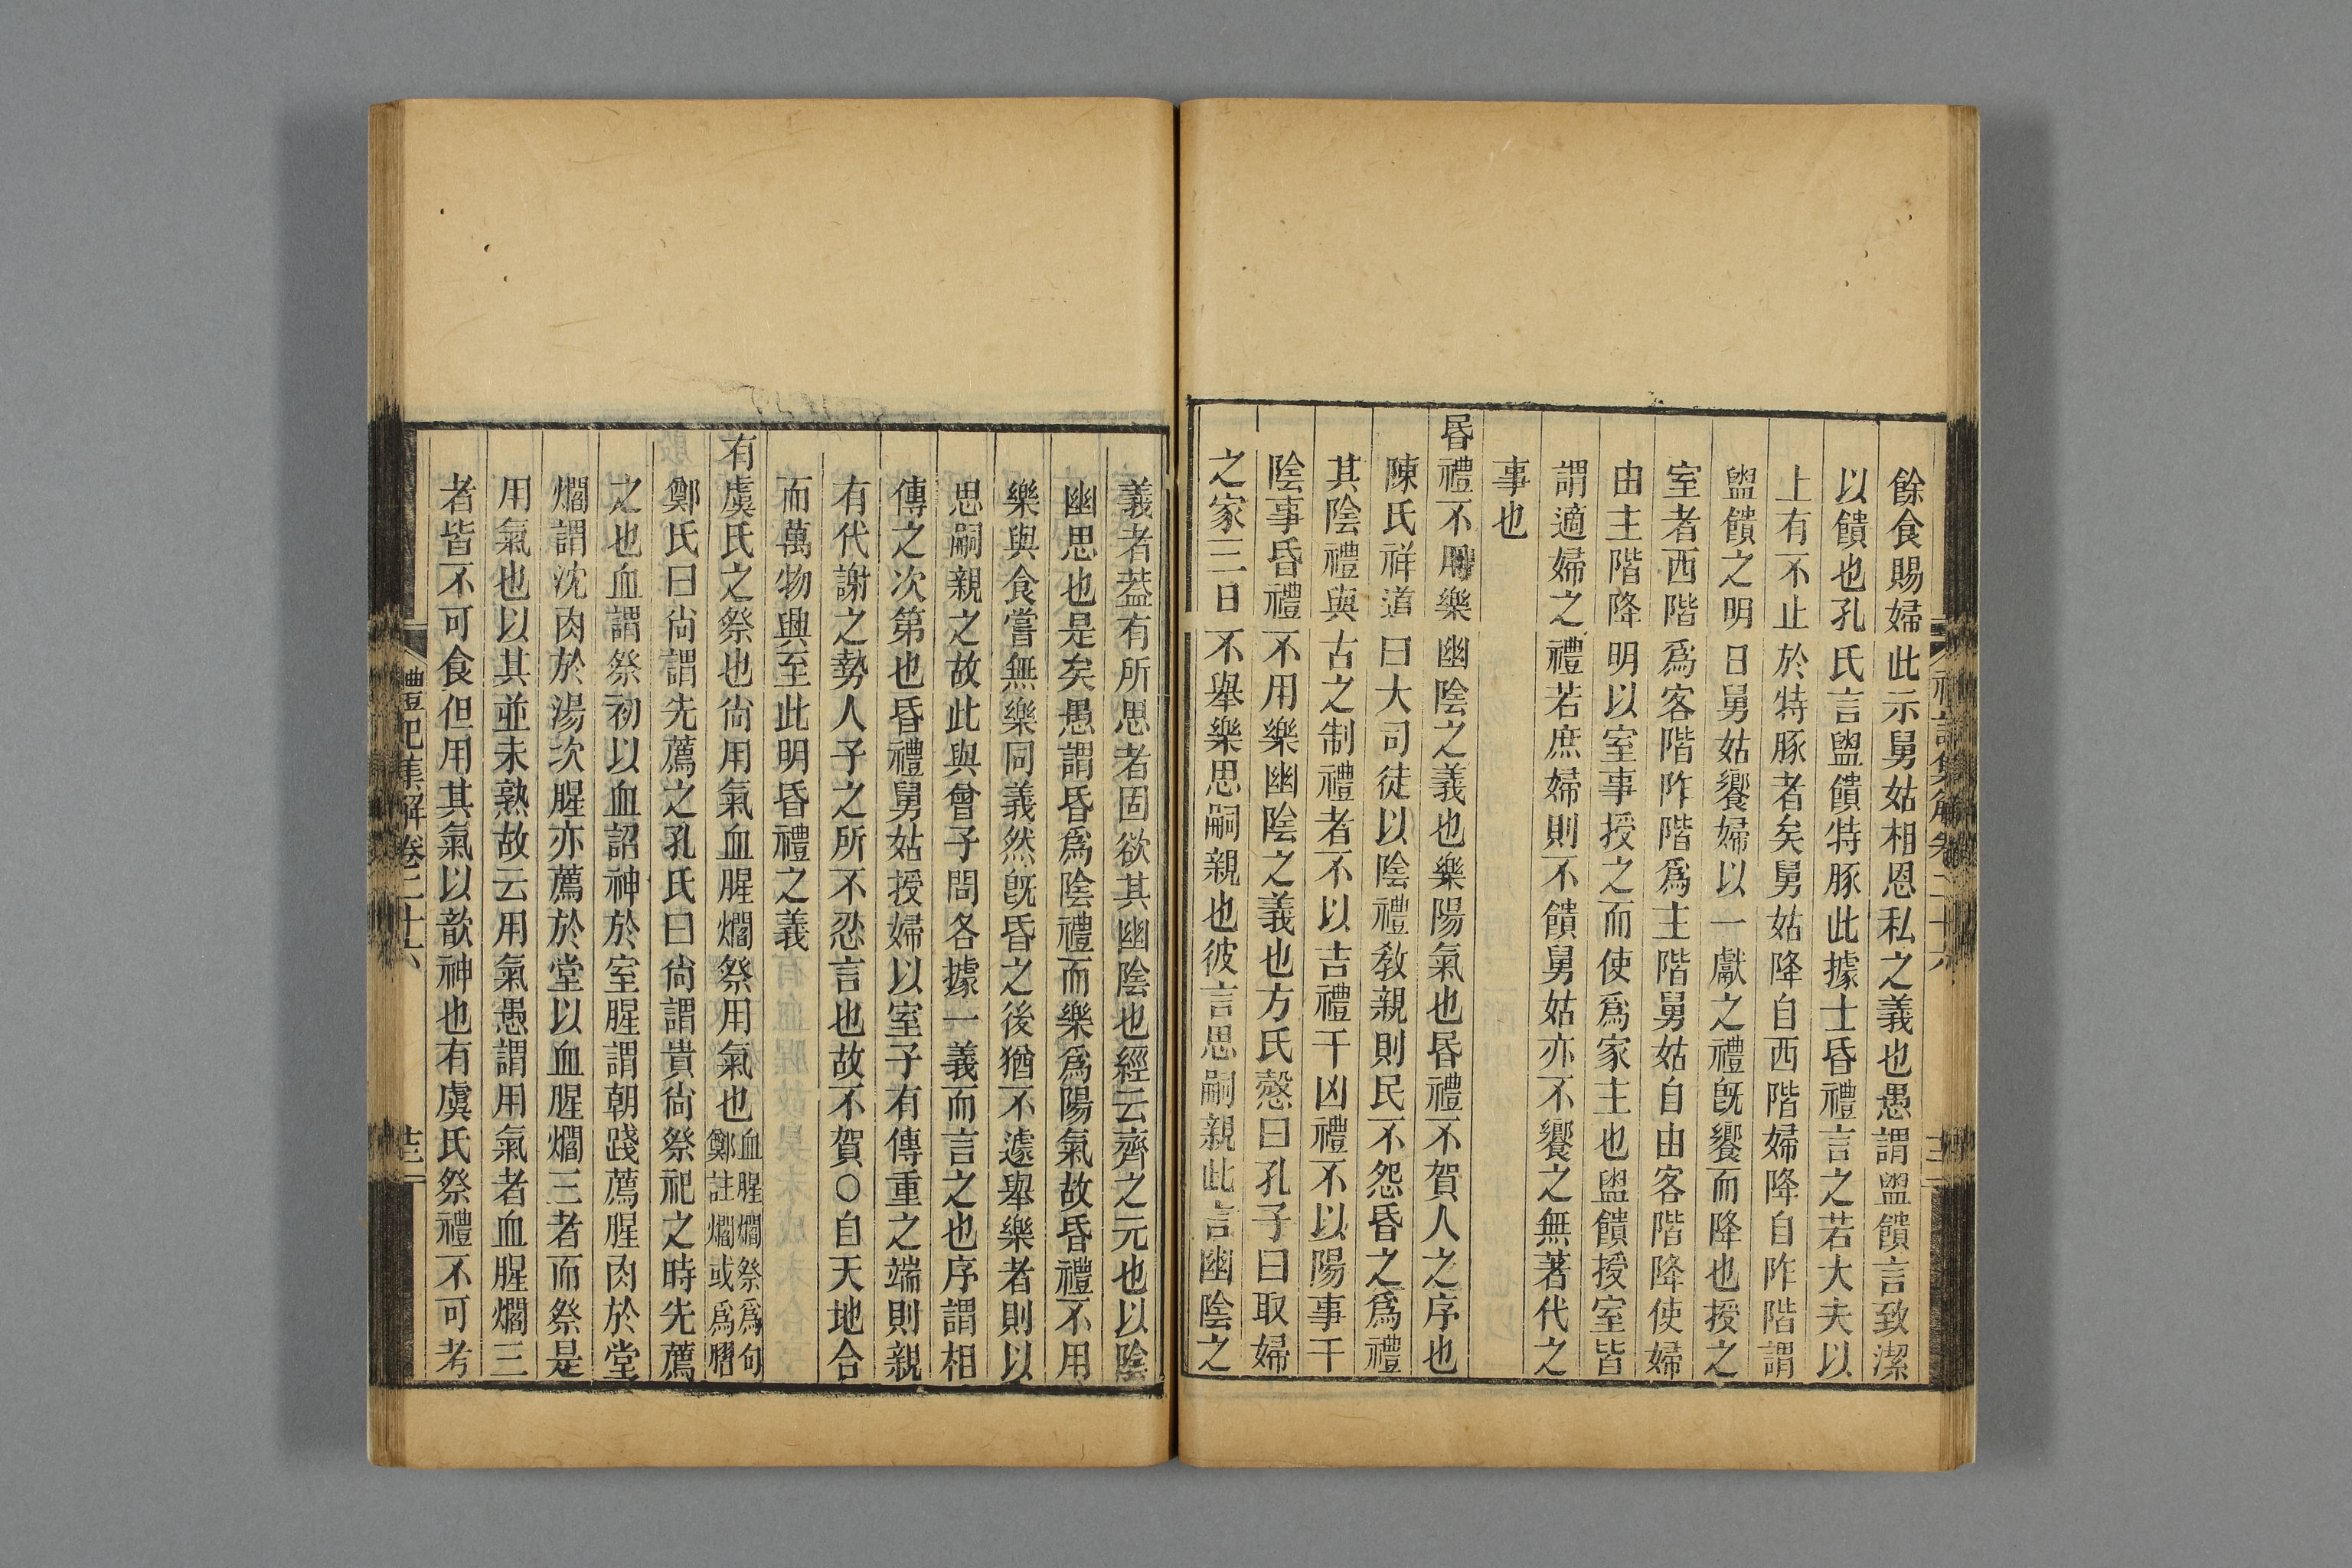 餘食賜婦此示舅姑相恩私之義也愚謂盥饋言致潔
以饋也孔氏言盥饋特豚此據士昏禮言之若大夫以
上有不止於特豚者矣舅姑降自西階婦降自阼階謂
盥饋之明日舅姑饗婦以一獻之禮旣饗而降也授之
室者西階爲客階阼階爲主階舅姑自由客階降使婦
由主階降明以室事授之而使爲家主也盥饋授室皆
謂適婦之禮若庶婦則不饋舅姑亦不饗之無著代之
事也
昬禮不用樂幽陰之義也樂陽氣也昬禮不賀人之序也
陳氏祥道曰大司徒以陰禮敎親則民不怨昏之爲禮
其陰禮與古之制禮者不以吉禮干凶禮不以陽事干
陰事昏禮不用樂幽陰之義也方氏慤曰孔子曰取婦
之家三日不舉樂思嗣親也彼言思嗣親此言幽陰之
義者葢有所思者固欲其幽陰也經云齊之元也以陰
幽思也是矣愚謂昏爲陰禮而樂爲陽氣故昏禮不用
樂與食嘗無樂同義然旣昏之後猶不遽舉樂者則以
思嗣親之故此與曾子問各據一義而言之也序謂相
傳之次第也昏禮舅姑授婦以室子有傳重之端則親
有代謝之勢人子之所不忍言也故不賀○自天地合
而萬物興至此明昏禮之義
有虞氏之祭也尙用氣血腥爓祭用氣也血腥爓祭爲句
鄭註爓或爲䐹
鄭氏曰尙謂先薦之孔氏曰尙謂貴尙祭祀之時先薦
之也血謂祭初以血詔神於室腥謂朝踐薦腥肉於堂
爓謂沈肉於湯次腥亦薦於堂以血腥爓三者而祭是
用氣也以其並未熟故云用氣愚謂用氣者血腥爓三
者皆不可食但用其氣以歆神也有虞氏祭禮不可考
禮記集解卷二十六